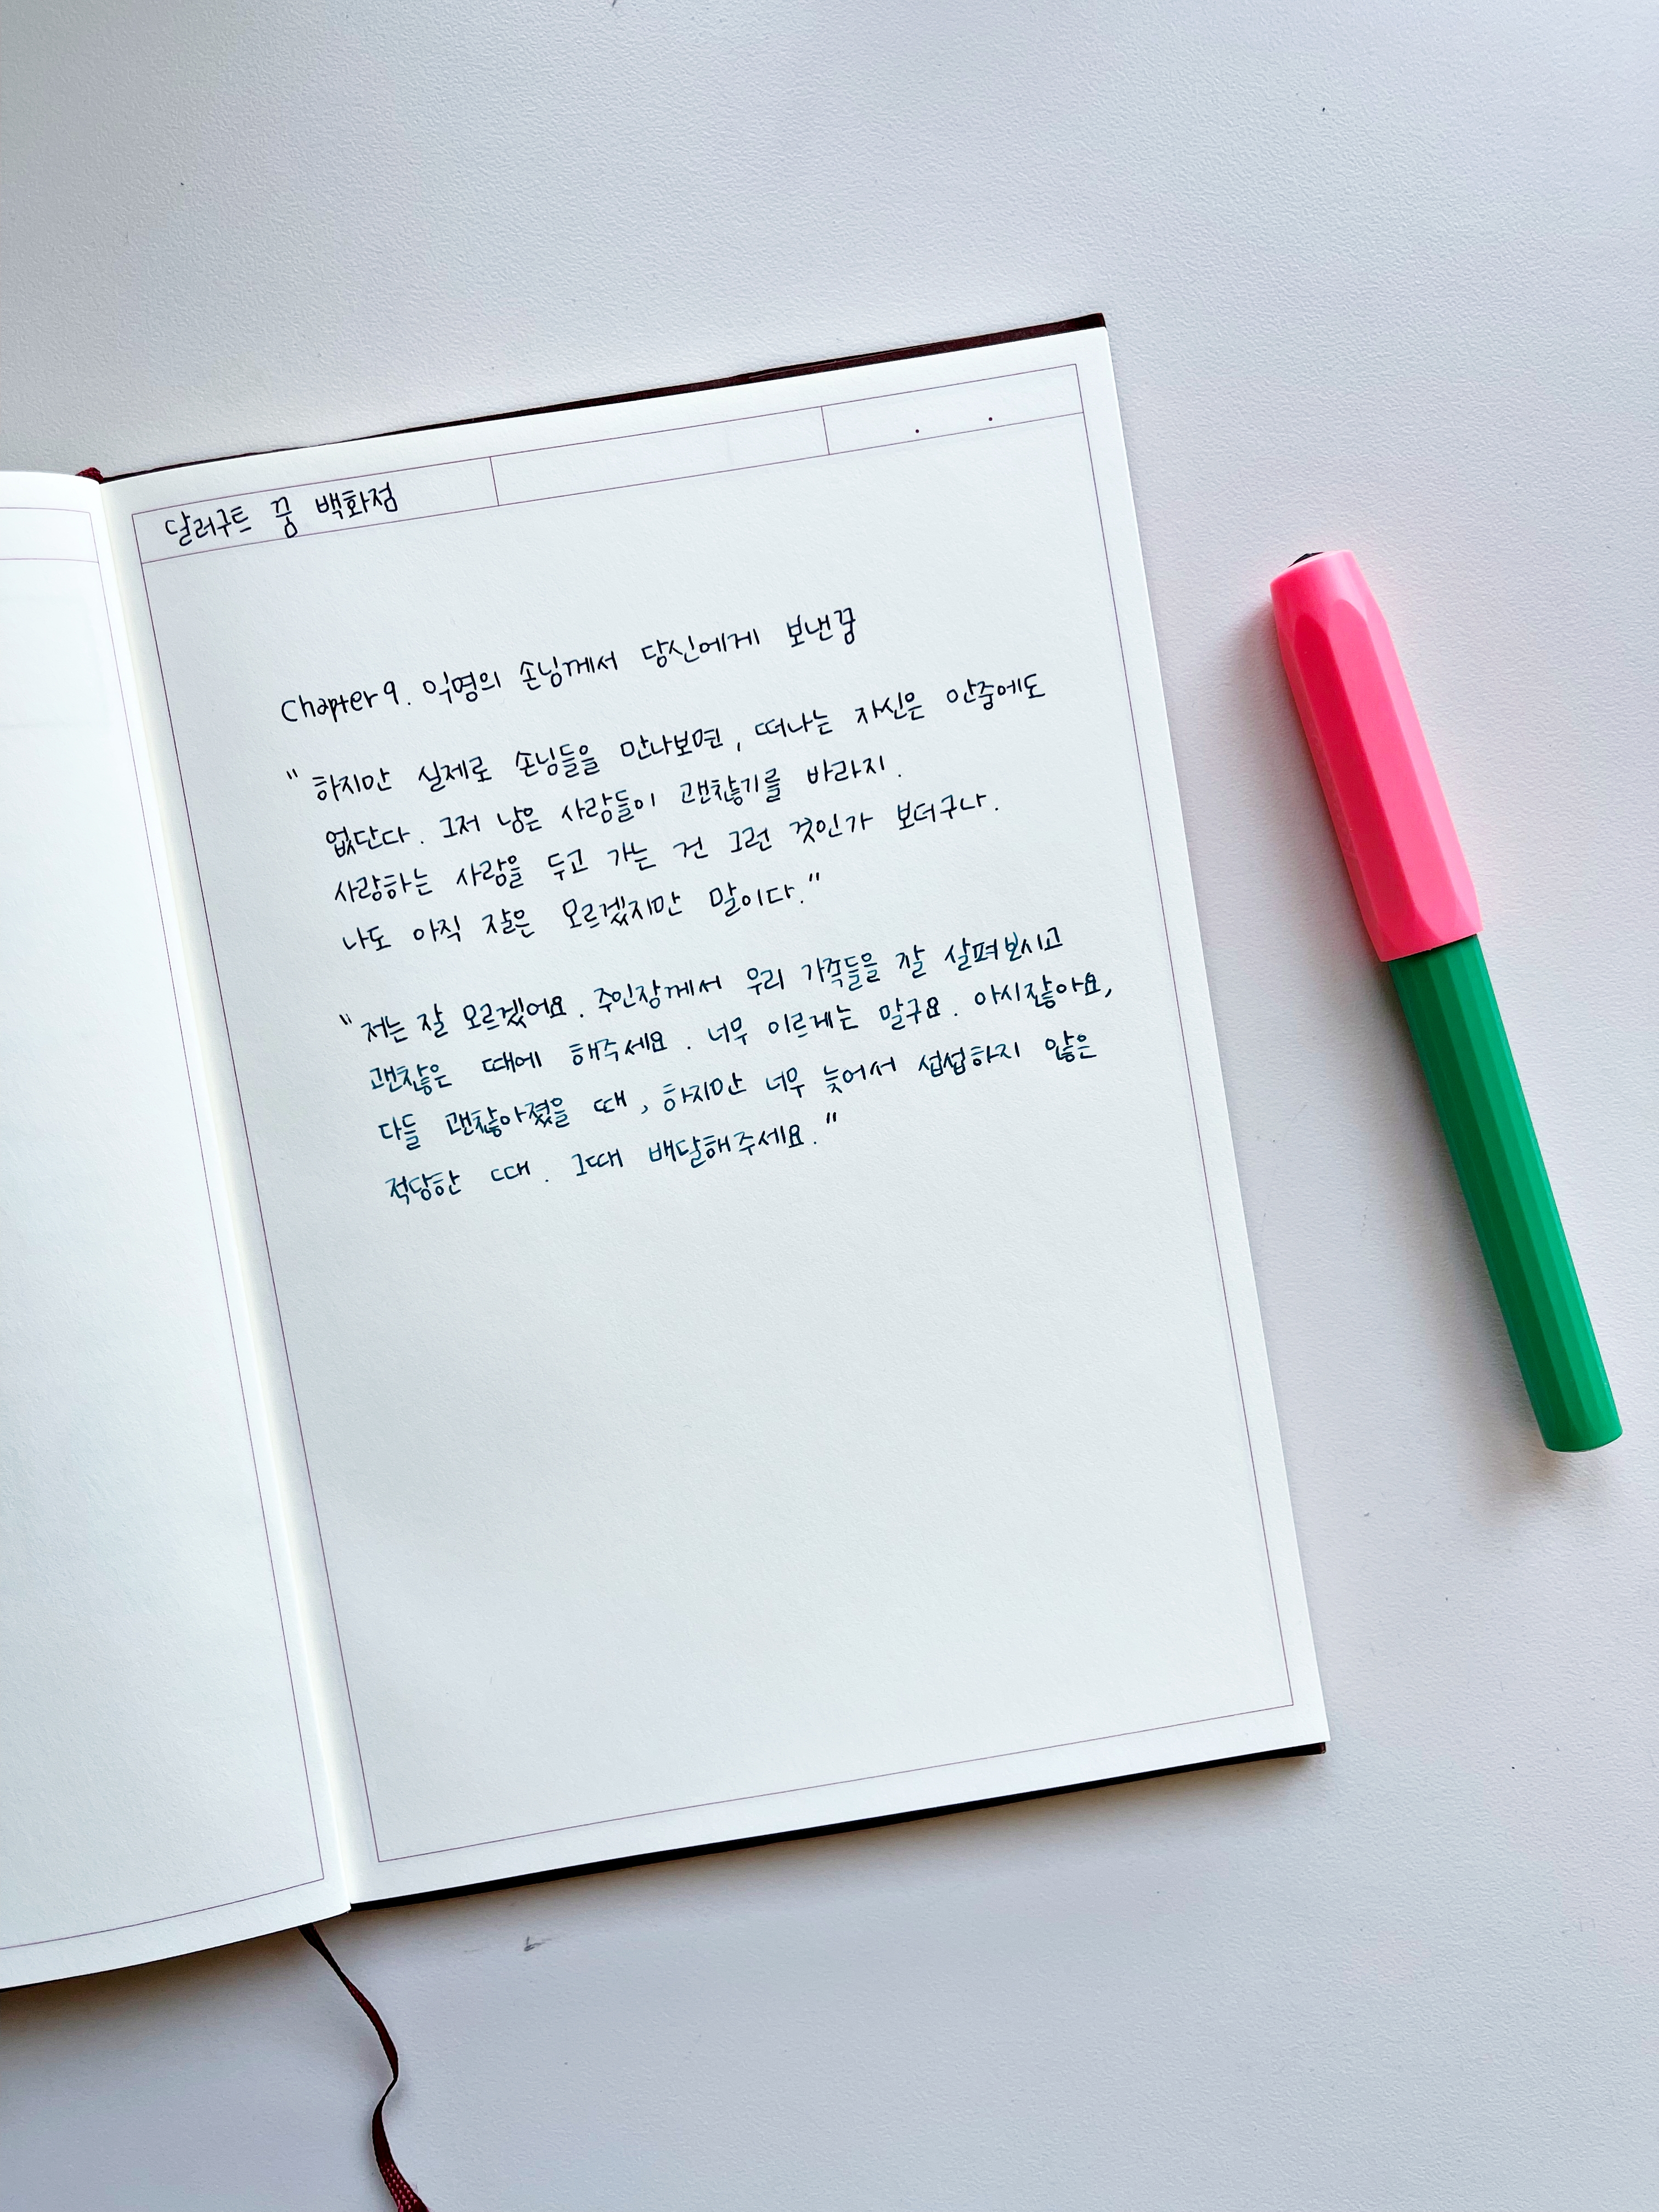 달러구트 꿈 백화점
Chapter 9. 익명의 손님께서 당신에게 보낸꿈
" 하지만 실제로 손님들을 만나보면, 떠나는 자신은 안중에도
없단다. 그저 남은 사람들이 괜찮기를 바라지.
사랑하는 사람을 두고 가는 건 그런 것인가 보더구나.
나도 아직 잘은 모르겠지만 말이다."
" 저는 잘 모르겠어요. 주인장께서 우리 가족들을 잘 살펴보시고
괜찮은 때에 해주세요. 너무 이르게는 말구요. 아시잖아요,
다들 괜찮아졌을 때, 하지만 너무 늦어서 섭섭하지 않은
적당한 때. 그때 배달해주세요."